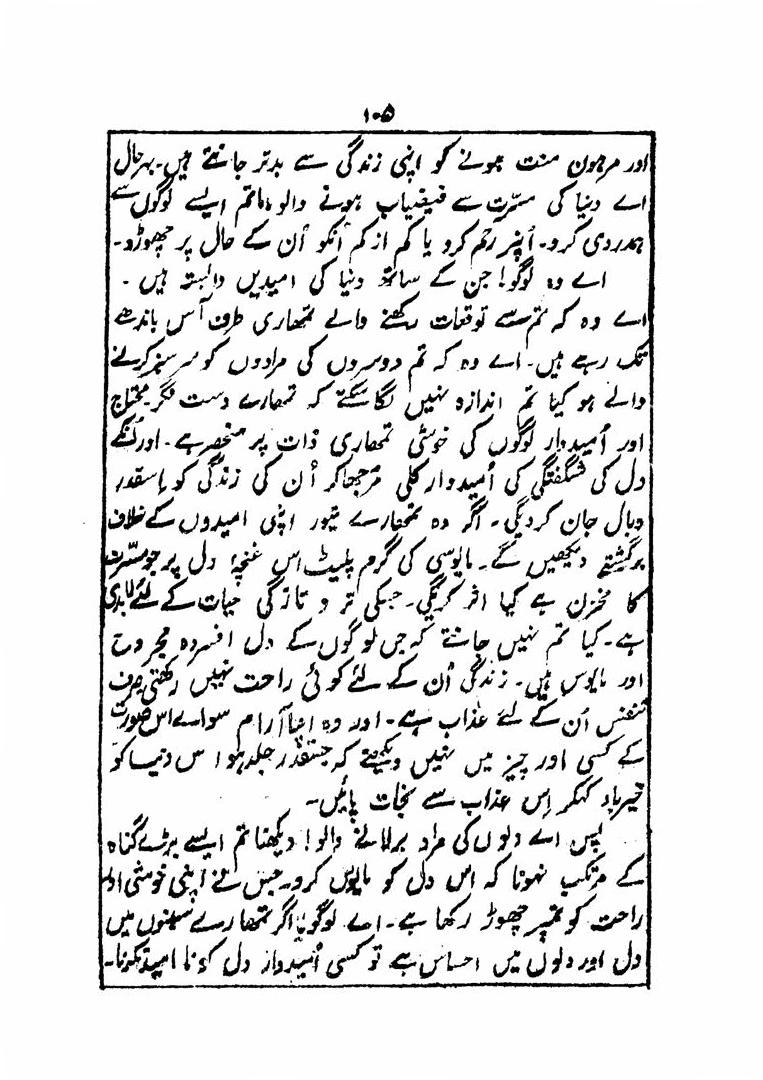 ۱۰۵
اور مرہون منت ہونے کو اپنی زندگی سے بدتر جانتے ہیں۔ بہرحال
اے دنیا کی مسرّت سے فیضیاب ہونے والو! تم ایسے لوگوں سے
ہمدردی کرو۔ اُنپر رحم کرو یا کم از کم اُنکو اُن کے حال پر چھوڑو۔
اے وہ لوگو! جن کے ساتھ دنیا کی امیدیں وابستہ ہیں۔
اے وہ کہ تم سے توقعات رکھنے والے تمھاری طرف آس باندھے
تک رہے ہیں۔ اے وہ کہ تم دوسروں کی مرادوں کو سرسبز کرنے
والے ہو کیا تم اندازہ نہیں لگا سکتے کہ تمھارے دست نگر۔ محتاج
اور اُمیدوار لوگوں کی خوشی تمھاری ذات پر منحصر ہے۔ اور اُنکے
دل کی شگفتگی کی اُمیدوار کلی مرجھا کر اُن کی زندگی کو اسقدر
وبال جان کردیگی۔ اگر وہ تمھارے تیور اپنی امیدوں کے خلاف
برگشتہ دیکھیں گے۔ مایوسی کی گرم پلیٹ اس غنچۂ دل پر جو مسّرت
کا مخزن ہے کیا اثر کریگی۔ جسکی تر و تازگی حیات کے لئے لابدی
ہے۔ کیا تم نہیں جانتے کہ جن لوگوں کے دل افسردہ مجروح
اور مایوس ہیں۔ زندگی اُن کے لئے کوئی راحت نہیں رکھتی صرف
تنفس اُن کے لئے عذاب ہے۔ اور وہ اپنا آرام سوائے اس صورت
کے کسی اور چیز میں نہیں دیکھتے کہ جسقدر جلد ہو اس دنیا کو
خیرباد کہکر اِس عذاب سے نجات پائیں۔
پس اے دلوں کی مراد برلانے والو! دیکھنا تم ایسے بڑے گناہ
کے مرتکب نہونا کہ اس دل کو مایوس کرو۔ جس نے اپنی خوشی اور
راحت کو تمپر چھوڑ رکھا ہے۔ اے لوگو! اگر تمھارے سینوں میں
دل اور دلوں میں احساس ہے تو کسی اُمیدوار دل کو نا امید نکرنا۔